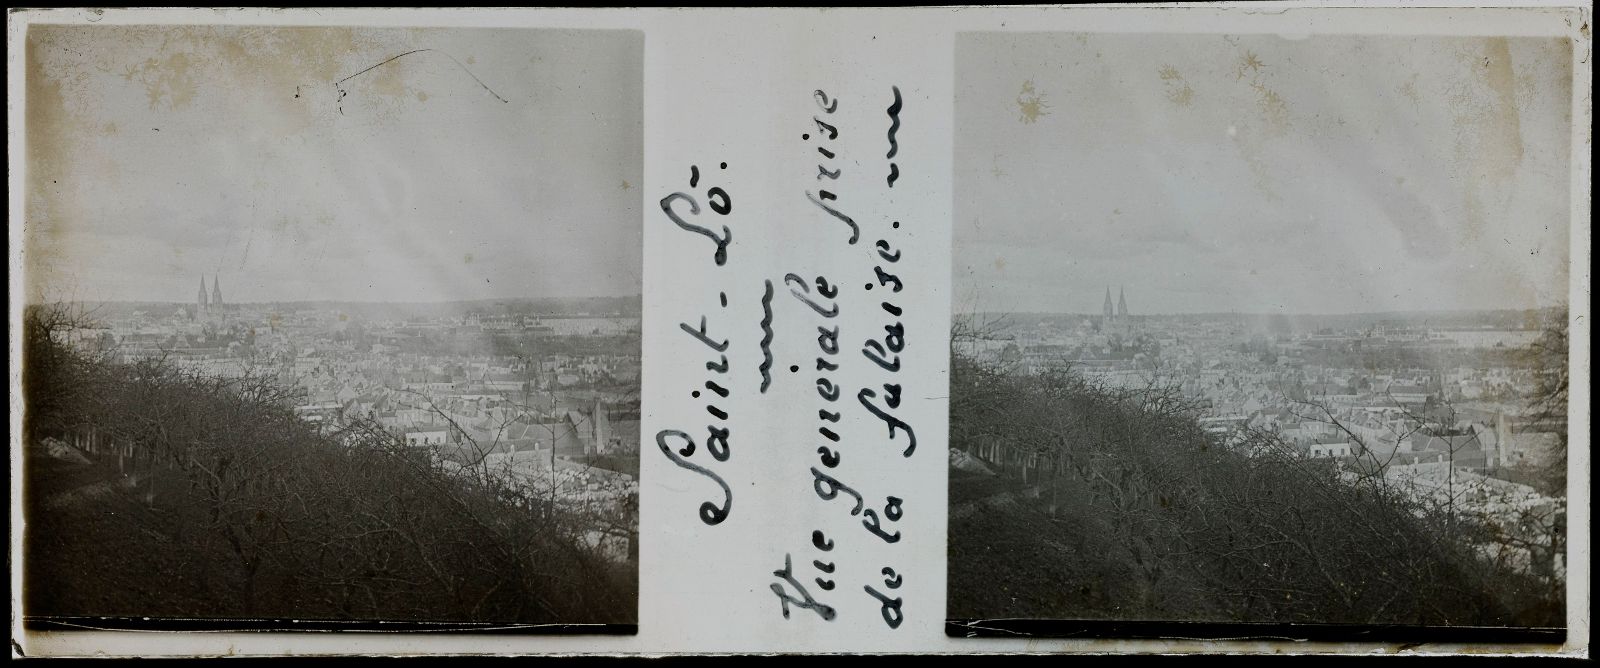 Saint-Lô.
Vue générale prise
de la falaise.